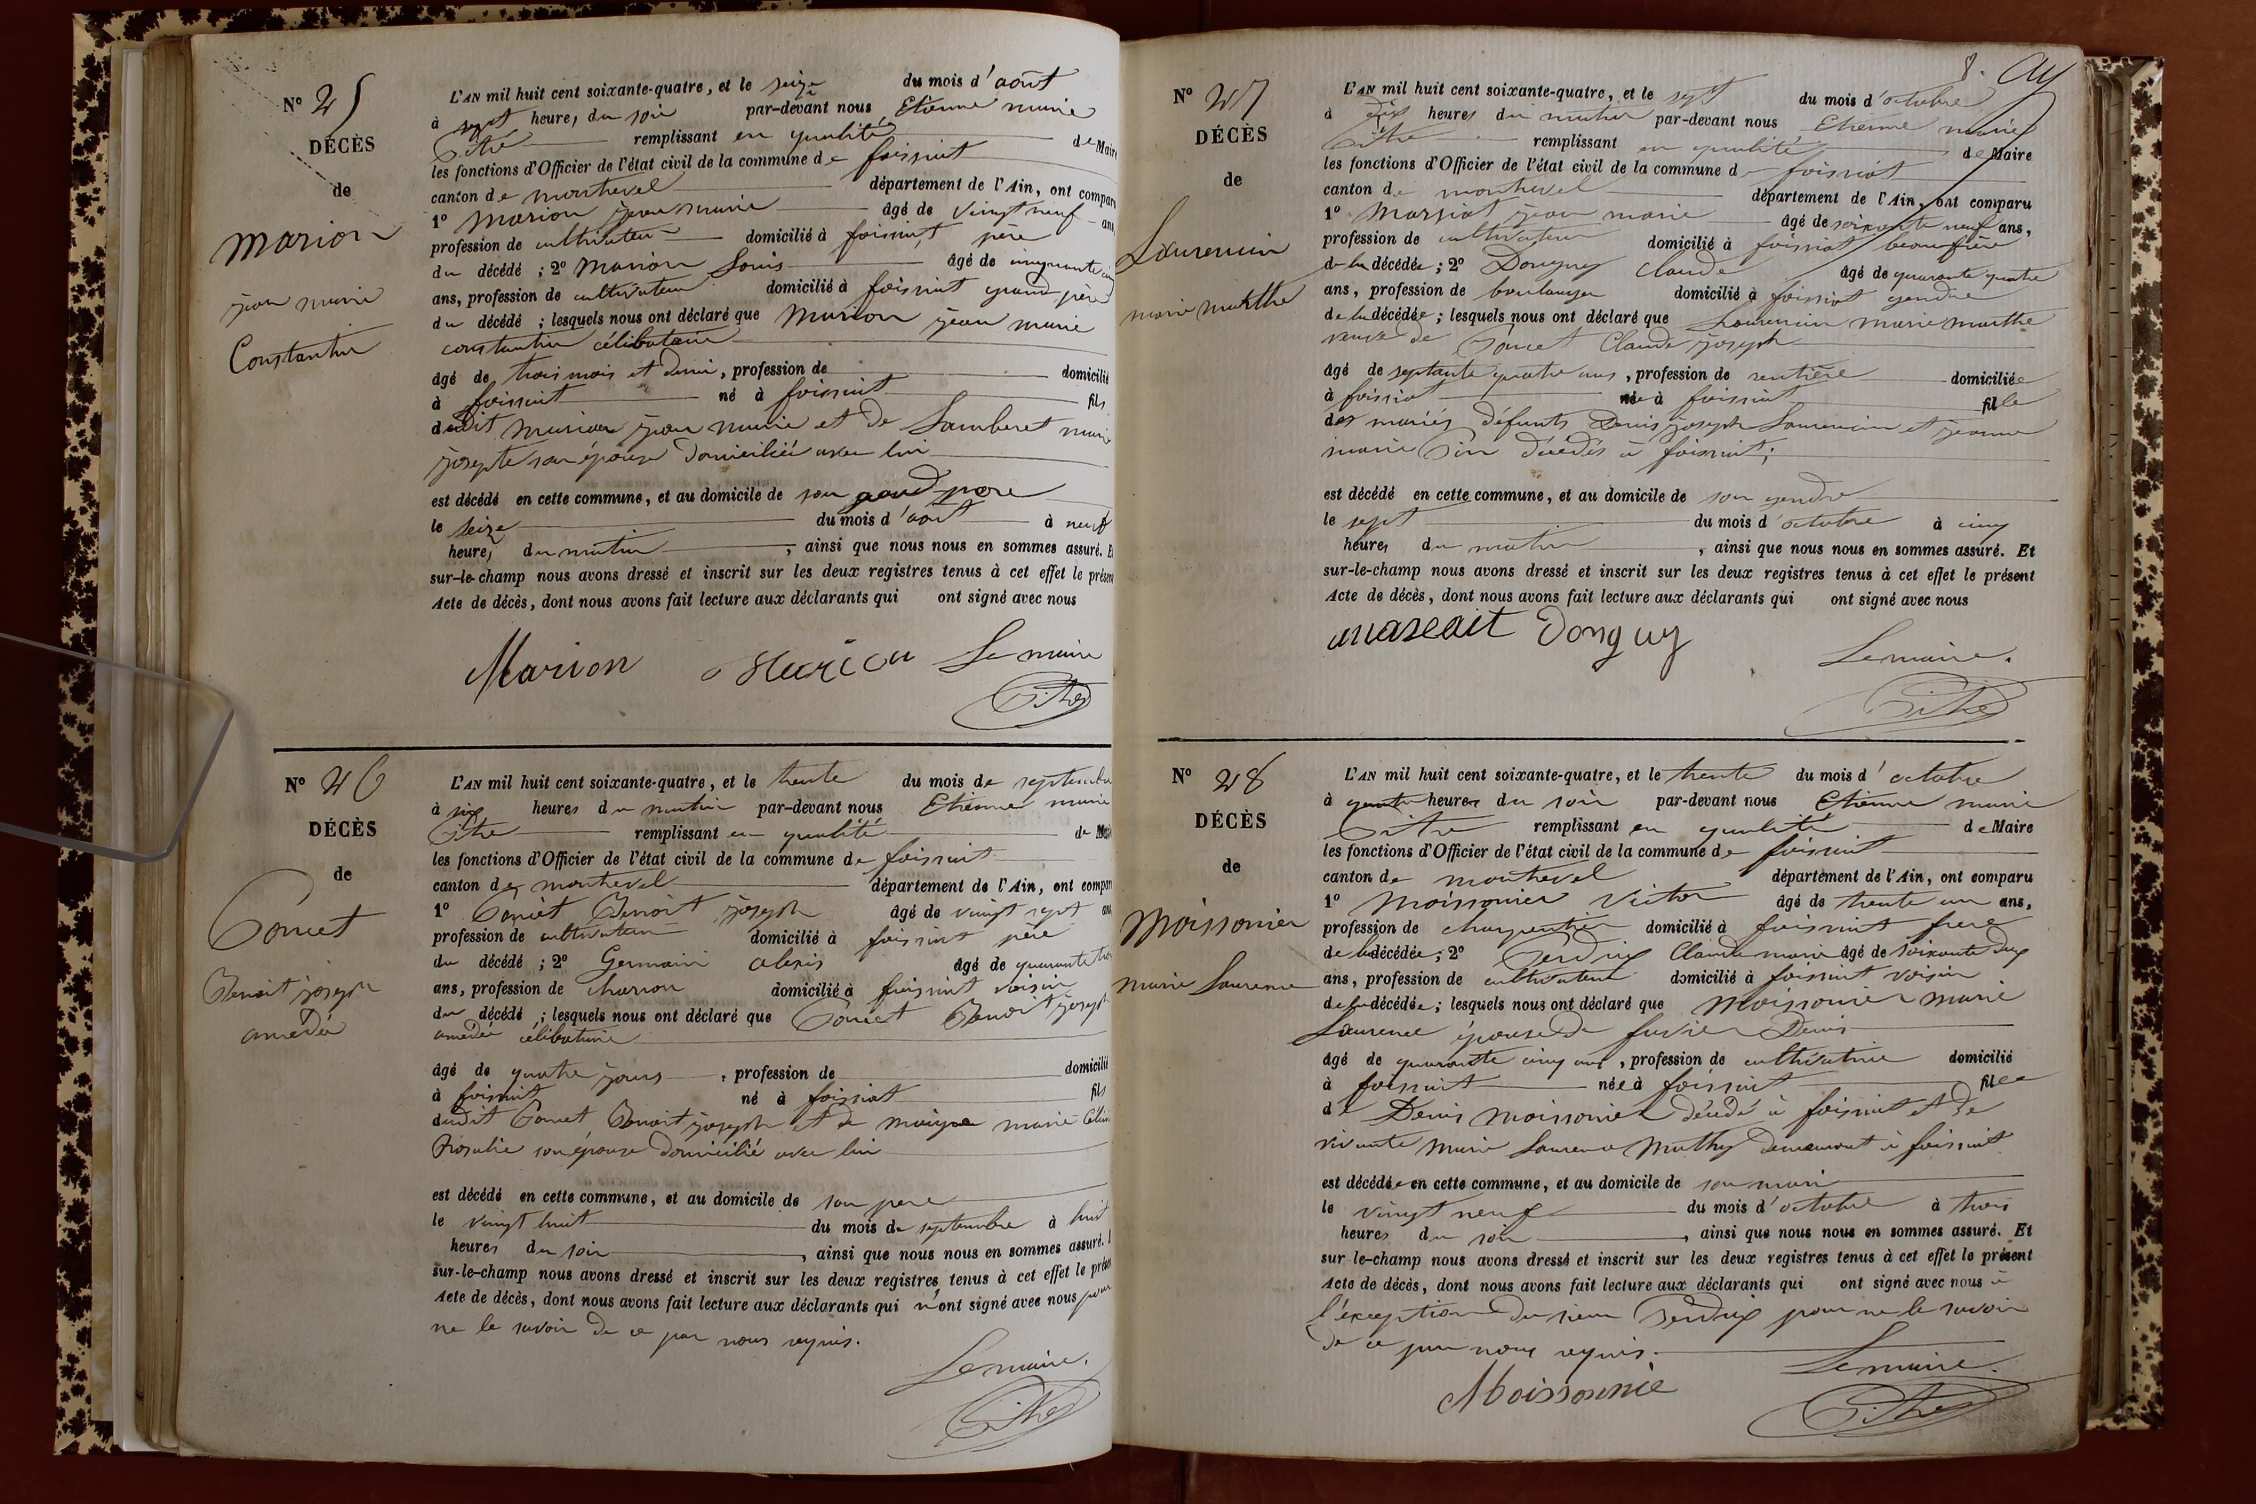 N° 25
DÉCÈS
de
Marion
jean marie
Constantin
L'AN mil huit cent soixante-quatre, et le seize du mois d'août
à sept heures du soir par-devant nous Etienne marie
Pithe remplissant en qualité de Maire
les fonctions d'Officier de l'état civil de la commune de foissiat
canton de montrevel département de l'Ain, ont comparu
1° Marion jean marie âgé de vingt neuf ans,
profession de cultivateur domicilié à foissiat, père
du décédé ; 2° Marion Louis âgé de cinquante cinq
ans, profession de cultivateur domicilié à foissiat grand père
du décédé ; lesquels nous ont déclaré que Marion jean marie
constantin célibataire
âgé de trois mois et demi, profession de domicilié
à foissiat né à foissiat fils
dudit Marion jean marie et de Lamberet marie
josepte son épouse domiciliée avec lui
est décédé en cette commune, et au domicile de son grand père
le seize du mois d'août à neuf
heures du matin, ainsi que nous nous en sommes assuré. Et
sur-le-champ nous avons dressé et inscrit sur les deux registres tenus à cet effet le présent
Acte de décès, dont nous avons fait lecture aux déclarants qui ont signé avec nous
Marion Marion Le maire
Pithe
N° 26
DÉCÈS
de
Poncet
Benoit joseph
amédée
L'AN mil huit cent soixante-quatre, et le trente du mois de septembre
à six heures du matin par-devant nous Etienne marie
Pithe remplissant en qualité de Maire
les fonctions d'Officier de l'état civil de la commune de foissiat
canton de montrevel département de l'Ain, ont comparu
1° Poncet Benoit joseph âgé de vingt sept ans
profession de cultivateur domicilié à foissiat père
du décédé ; 2° Germain alexis âgé de quarante trois
ans, profession de charron domicilié à foissiat voisin
du décédé ; lesquels nous ont déclaré que Poncet Benoit joseph
amédée célibataire
âgé de quatre jours, profession de domicilié
à foissiat né à foissiat fils
dudit Poncet Benoit joseph et de marie
Rosalie son épouse domicilié avec lui
est décédé en cette commune, et au domicile de son père
le vingt huit du mois de septembre à huit
heures du soir, ainsi que nous nous en sommes assuré.
sur-le-champ nous avons dressé et inscrit sur les deux registres tenus à cet effet le présent
Acte de décès, dont nous avons fait lecture aux déclarants qui n'ont signé avec nous pour
ne le savoir de ce par nous requis.
Le maire.
Pithe
8.
N° 27
DÉCÈS
de
Laurencin
marie marthe
L'AN mil huit cent soixante-quatre, et le sept du mois d'octobre
à dix heures du matin par-devant nous Etienne marie
Pithe remplissant en qualité de Maire
les fonctions d'Officier de l'état civil de la commune d foissiat
canton de montrevel département de l'Ain, ont comparu
1° jean marie âgé de soixante neuf ans,
profession de cultivateur domicilié à foissiat beaufrère
de la décédée ; 2° Donguy Claude âgé de quarante quatre
ans, profession de boulanger domicilié à foissiat gendre
de la décédée ; lesquels nous ont déclaré que Laurencin marie marthe
veuve de Poncet Claude joseph
âgé de septante quatre ans, profession de rentière domiciliée
à foissiat née à foissiat fille
des mariés défunts Denis joseph Laurencin et jeanne
marie décédés à foissiat ;
est décédé en cette commune, et au domicile de son gendre
le sept du mois d'octobre à cinq
heures du matin, ainsi que nous nous en sommes assuré. Et
sur-le-champ nous avons dressé et inscrit sur les deux registres tenus à cet effet le présent
Acte de décès, dont nous avons fait lecture aux déclarants qui ont signé avec nous
Donguy Le maire.
Pithe
N° 28
DÉCÈS
de
Moissonier
marie Laurence
L'AN mil huit cent soixante-quatre, et le trente du mois d'octobre
à quatre heures du soir par-devant nous Etienne marie
Pithe remplissant en qualité de Maire
les fonctions d'Officier de l'état civil de la commune de foissiat
canton de montrevel département de l'Ain, ont comparu
1° Moissonier Victor âgé de trente un ans,
profession de charpentier domicilié à foissiat frere
de la décédée ; 2° Perdrix Claude marie âgé de soixante dix
ans, profession de cultivateur domicilié à foissiat voisin
de la décédée ; lesquels nous ont déclaré que Moissonier marie
Laurence épouse de Denis
âgé de quarante cinq ans, profession de cultivatrice domicilié
à foissiat née à foissiat fille
de Denis Moissonier décédé à foissiat et de
vivante marie Laurence Mathy demeurant à foissiat
est décédée en cette commune, et au domicile de son mari
le vingt neuf du mois d'octobre à trois
heures du soir, ainsi que nous nous en sommes assuré. Et
sur le-champ nous avons dressé et inscrit sur les deux registres tenus à cet effet le présent
Acte de décès, dont nous avons fait lecture aux déclarants qui ont signé avec nous à
l'exception du sieur Perdrix pour ne le savoir
de ce par nous requis.
Moissonnié Le maire.
Pithe